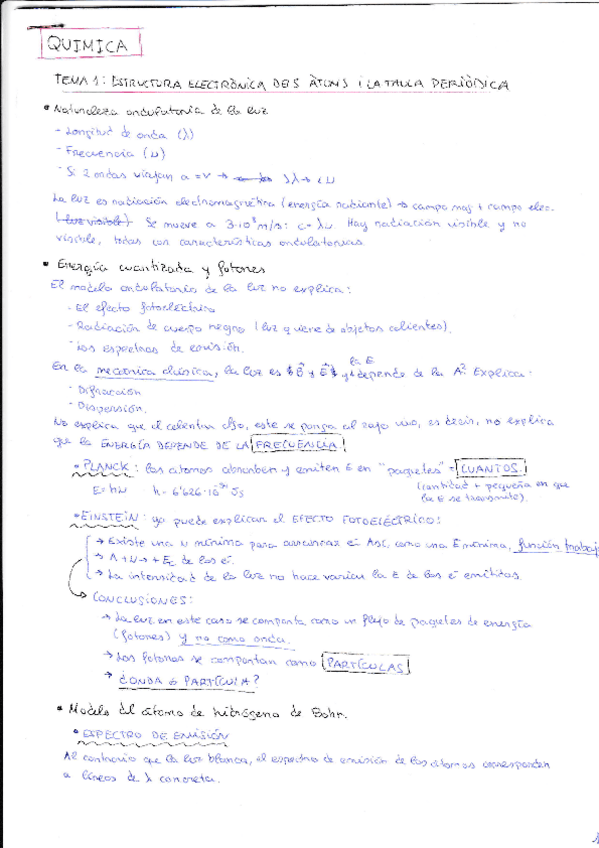 QUIMICA
TEMA 1: ESTRUCTURA ELECTRÒNICA DELS ÀTOMS I LA TAULA PERIÒDICA
• Naturaleza ondulatoria de la luz
- Longitud de onda (λ)
- Frecuencia (ν)
- Si 2 ondas viajan a =v → ↓λ → ν
La luz es radiación electromagnética (energía radiante) → campo mag + campo elec.
(luz visible) Se mueve a 3·10⁸ m/s: c=λν Hay radiación visible y no
visible, todas con características ondulatorias.
• Energía cuantizada y fotones
El modelo ondulatorio de la luz no explica:
- El efecto fotoeléctrico
- Radiación de cuerpo negro (luz q viene de objetos calientes).
- Los espectros de emisión.
En la mecánica clásica, la luz es B y E y la E depende de la A². Explica:
- Difracción
- Dispersión.
No explica que al calentar algo, este se ponga al rojo vivo, es decir, no explica
que la ENERGÍA DEPENDE DE LA FRECUENCIA
• PLANCK: los átomos absorben y emiten E en "paquetes" = CUANTOS.
(cantidad + pequeña en que
la E se transmite)
E=hν h=6'626·10⁻³⁴ Js
• EINSTEIN: ya puede explicar el EFECTO FOTOELÉCTRICO:
→ Existe una ν mínima para arrancar e⁻. Así, como una E mínima, función trabajo
→ A +ν → + Ec de los e⁻.
→ La intensidad de la luz no hace variar la E de los e⁻ emitidos.
CONCLUSIONES:
→ La luz en este caso se comporta como un flujo de paquetes de energía
(fotones) y no como onda.
→ Los fotones se comportan como PARTÍCULAS
→ ¿ONDA o PARTÍCULA?
• Modelo del átomo de hidrógeno de Bohr.
• ESPECTRO DE EMISIÓN
Al contrario que la luz blanca, el espectro de emisión de los átomos corresponden
a líneas de λ concreta.